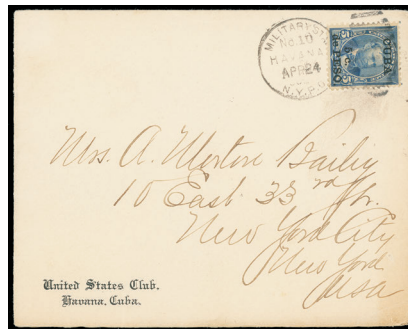 MILITARY STA
No. 10
HAVANA
APR 24
N.Y.P.O.
CUBA
Mrs. A. Mertore Bailey
10 East 33rd Str.
New York City
New York
USA
United States Club.
Havana, Cuba.